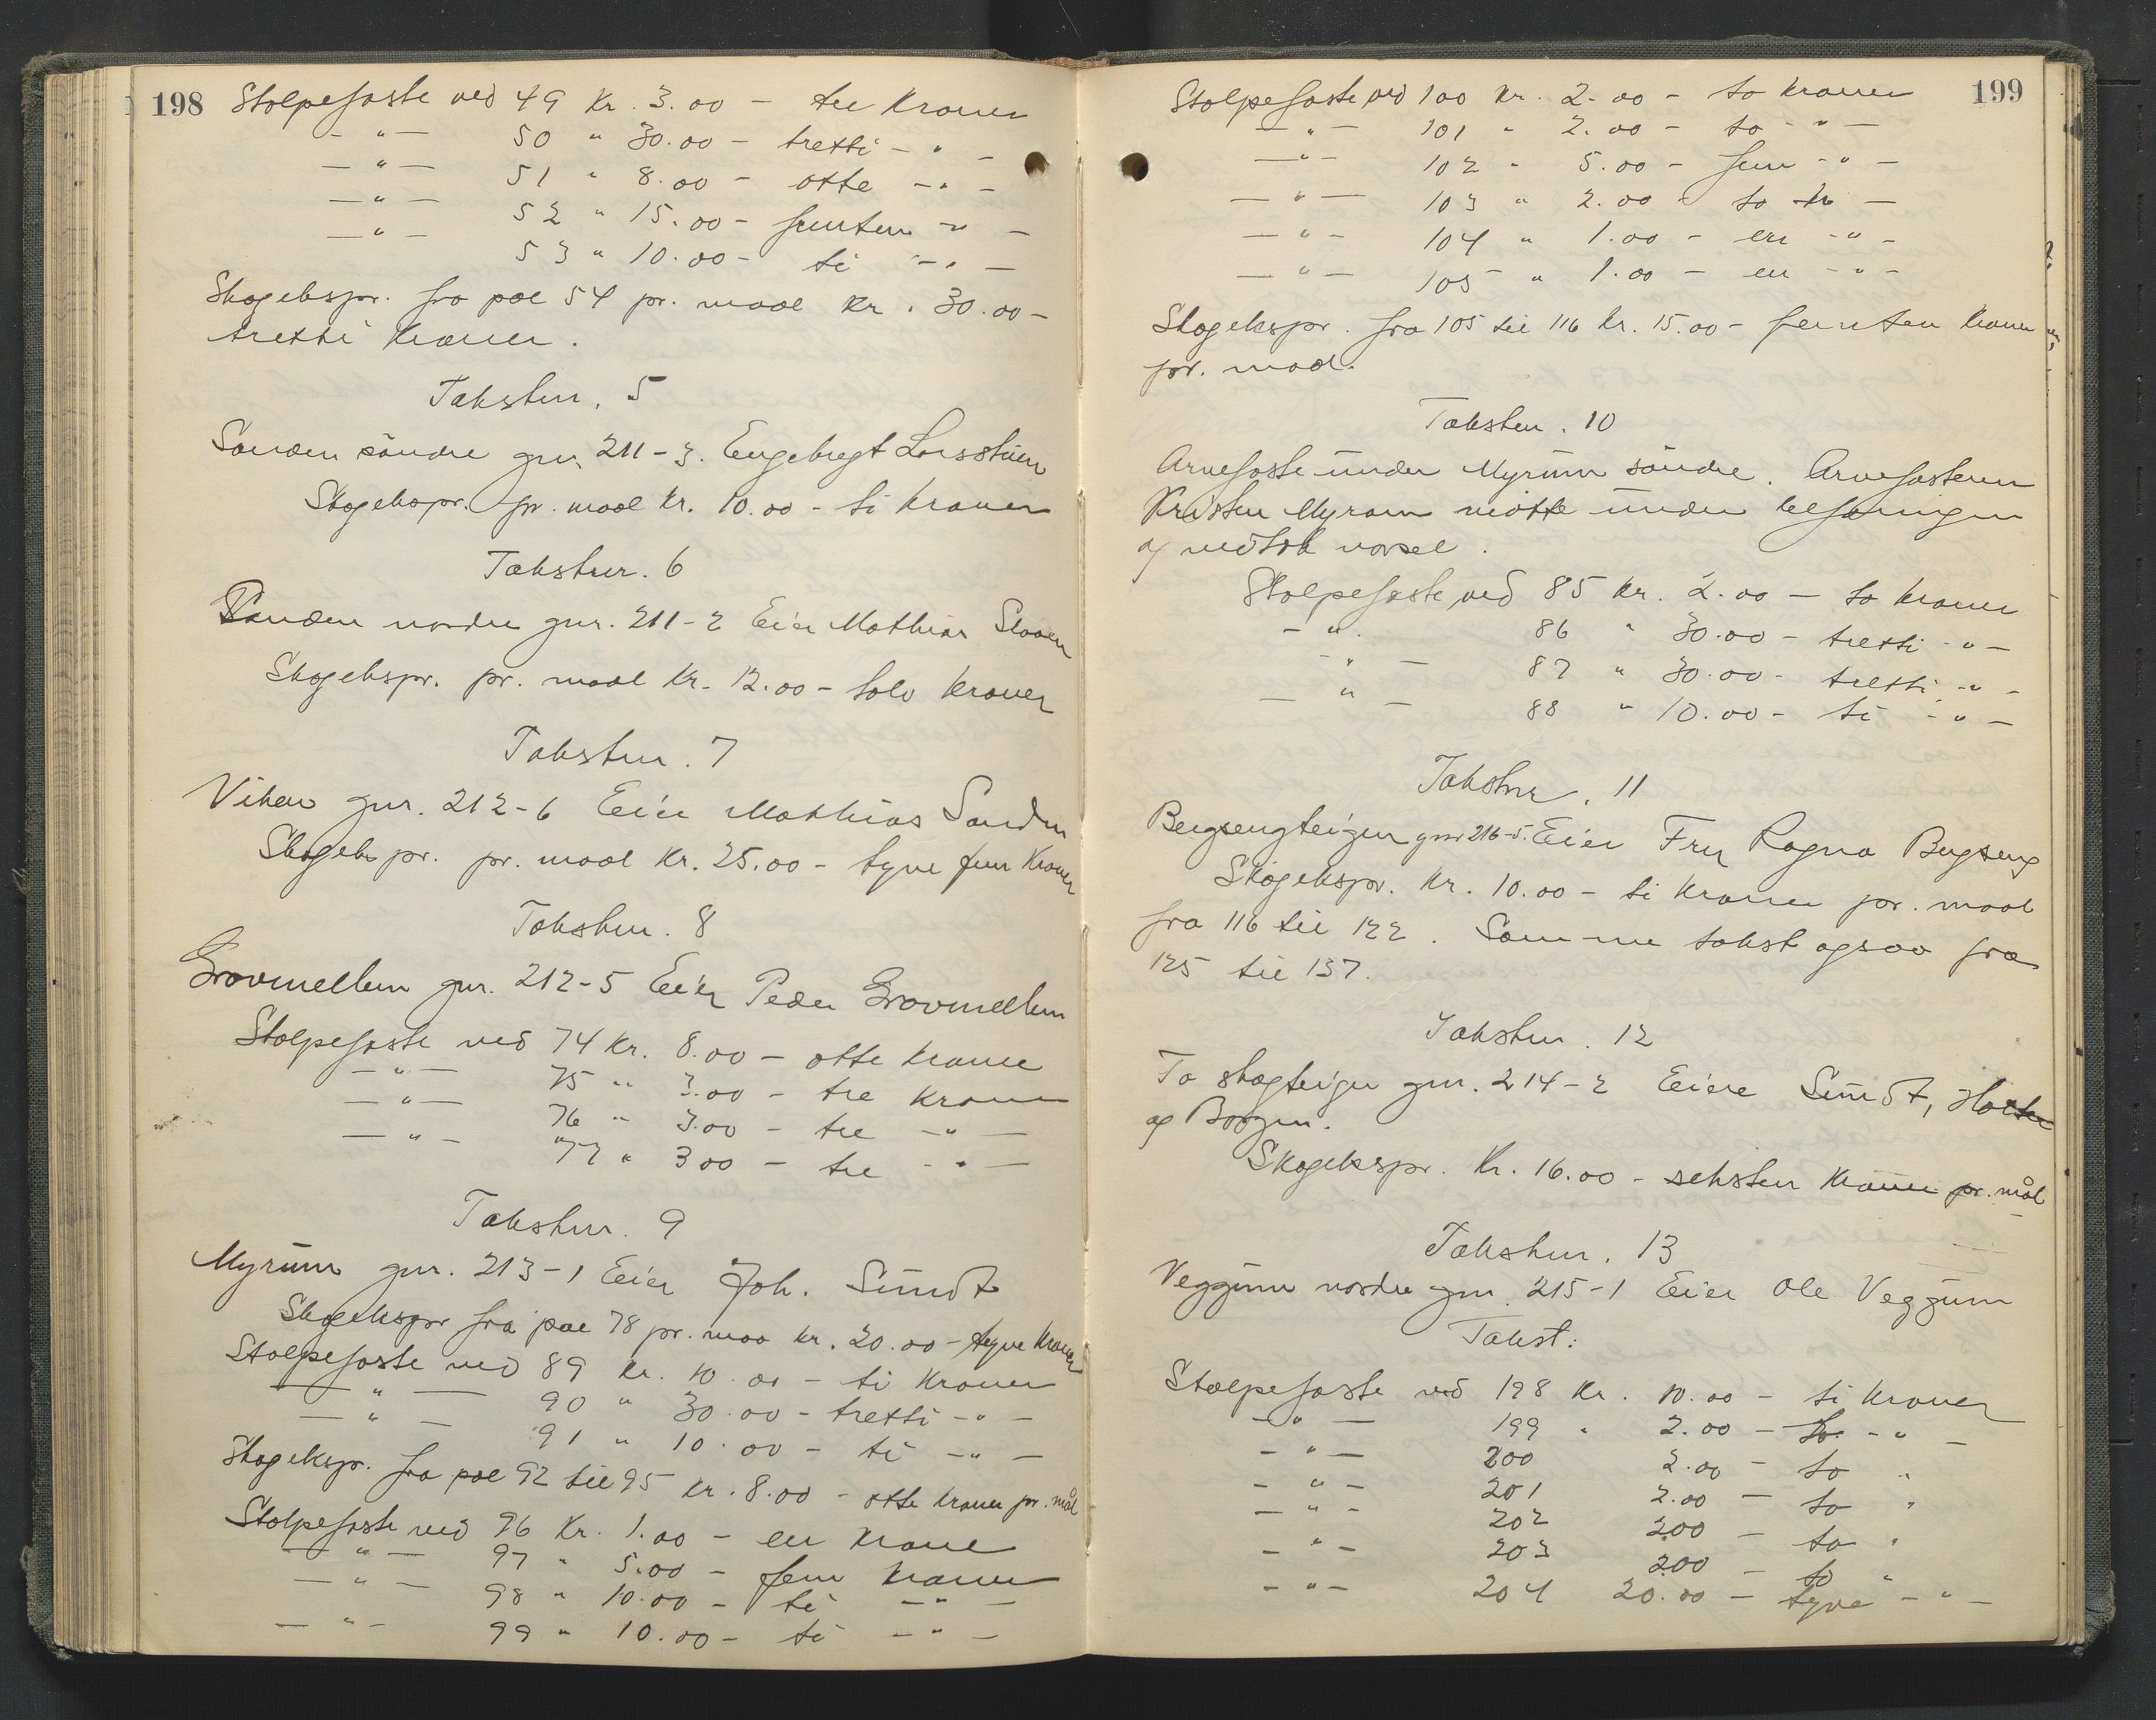 198
Stolpefæste ved 49 Kr. 3.00 - tre Kroner
- " - 50 " 30.00 - tretti - " -
- " - 51 " 8.00 - otte - " -
- " - 52 " 15.00 - femten - " -
- " - 53 " 10.00 - ti - " -
Skogekspr. fra pæl 54 pr. maal Kr. 30.00 -
tretti Kroner.
Takstnr. 5
Sanden søndre gnr. 211-3. Engebregt
Skogekspr. pr. maal Kr. 10.00 - ti Kroner
Takstnr. 6
Sanden nordre gnr. 211-2 Eier Mathias
Skogekspr. pr. maal Kr. 12.00 - tolv Kroner
Takstnr. 7
Viken gnr. 212-6 Eier Mathias Sanden
Skogekspr. pr. maal Kr. 25.00 - tyve fem Kroner
Takstnr. 8
Grovmellem gnr. 212-5 Eier Peder Grovmellem
Stolpefæste ved 74 Kr. 8.00 - otte Kroner
- " - 75 " 3.00 - tre Kroner
- " - 76 " 3.00 - tre - " -
- " - 77 " 3 00 - tre - " -
Takstnr. 9
Myrum gnr. 213-1 Eier Joh. Sundt
Skogekspr fra pæl 78 pr. maa kr. 20.00 - tyve Kroner
Stolpefæste ved 89 Kr. 10.00 - ti Kroner
- " - 90 " 30.00 - tretti - " -
- " - 91 " 10.00 - ti - " -
Skogekspr. fra pæl 92 til 95 Kr. 8.00 - otte Kroner pr. mål
Stolpefæste ved 96 Kr. 1.00 - en Krone
- " - 97 " 5.00 - fem Kroner
- " - 98 " 10.00 - ti - " -
- " - 99 " 10.00 - ti - " -
199
Stolpefæste ved 100 Kr. 2.00 - to Kroner
- " - 101 " 2.00 - to - " -
- " - 102 " 5.00 - fem - " -
- " - 103 " 2.00 - to kr -
- " - 104 " 1.00 - en - " -
- " - 105 " 1.00 - en - " -
Skogekspr. fra 105 til 116 Kr. 15.00 - femten Kroner
pr. maal.
Takstnr. 10
Arvefæste under Myrum søndre. Arvefæsteren
Kristen Myrom møtte under befaringen
og vedtok varsel.
Stolpefæste ved 85 Kr. 2.00 - to Kroner
- " - 86 " 30.00 - tretti - " -
- " - 87 " 30.00 - tretti - " -
- " - 88 " 10.00 - ti - " -
Takstnr. 11
Bergsengteigen gnr 216-5. Eier Fru Ragna Bergseng
Skogekspr. Kr. 10.00 - ti Kroner pr. maal
fra 116 til 122. Samme takst ogsaa fra
125 til 137.
Takstnr. 12
To skogteiger gnr. 214-2 Eiere Sundt,
og Borgen.
Skogekspr. Kr. 16.00 - seksten Kroner pr. mål
Takstnr. 13
Veggum nordre gnr. 215-1 Eier Ole Veggum
Takst:
Stolpefæste ved 198 Kr. 10.00 - ti Kroner
- " - 199 " 2.00 - to - " -
- " - 200 2.00 - to "
- " - 201 2.00 - to "
- " - 202 200 - to "
- " - 203 200 - to "
- " - 204 20.00 - tyve - " -